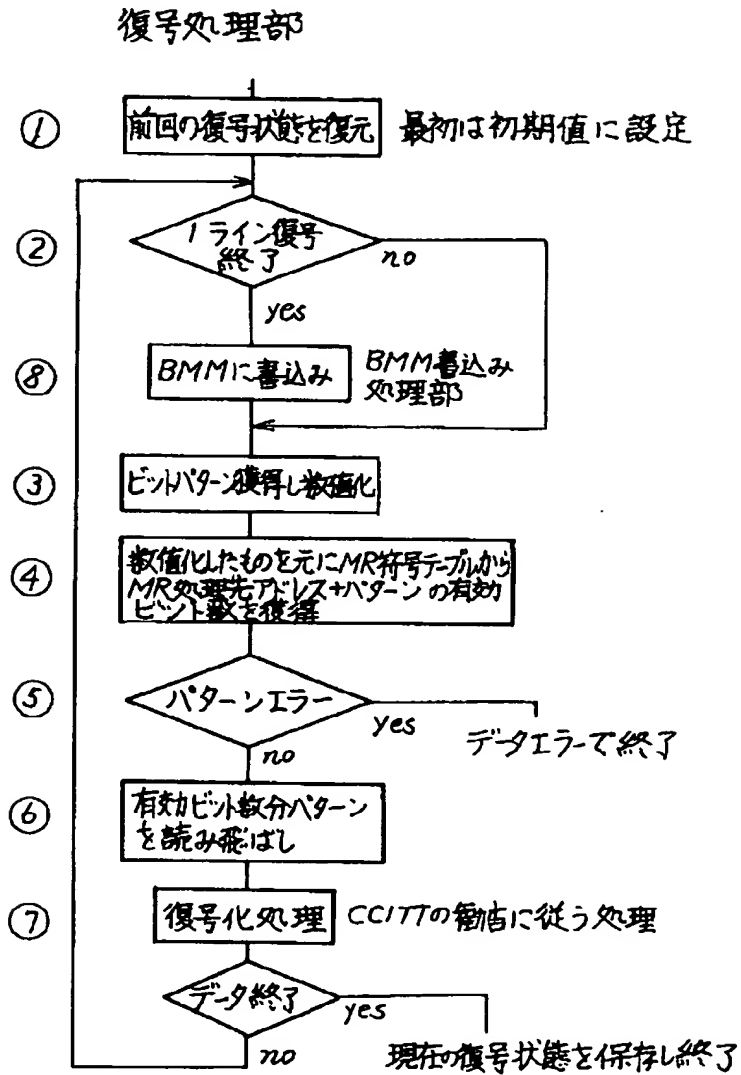 復号処理部
①
前回の復号状態を復元
最初は初期値に設定
②
1ライン復号
終了
no
yes
⑧
BMMに書込み
BMM書込み
処理部
③
ビットパターン獲得し数値化
④
数値化したものを元にMR符号テーブルから
MR処理先アドレス+パターンの有効
ビット数を獲得
⑤
パターンエラー
yes
データエラーで終了
no
⑥
有効ビット数分パターン
を読み飛ばし
⑦
復号化処理
CCITTの勧告に従う処理
データ終了
yes
no
現在の復号状態を保存し終了